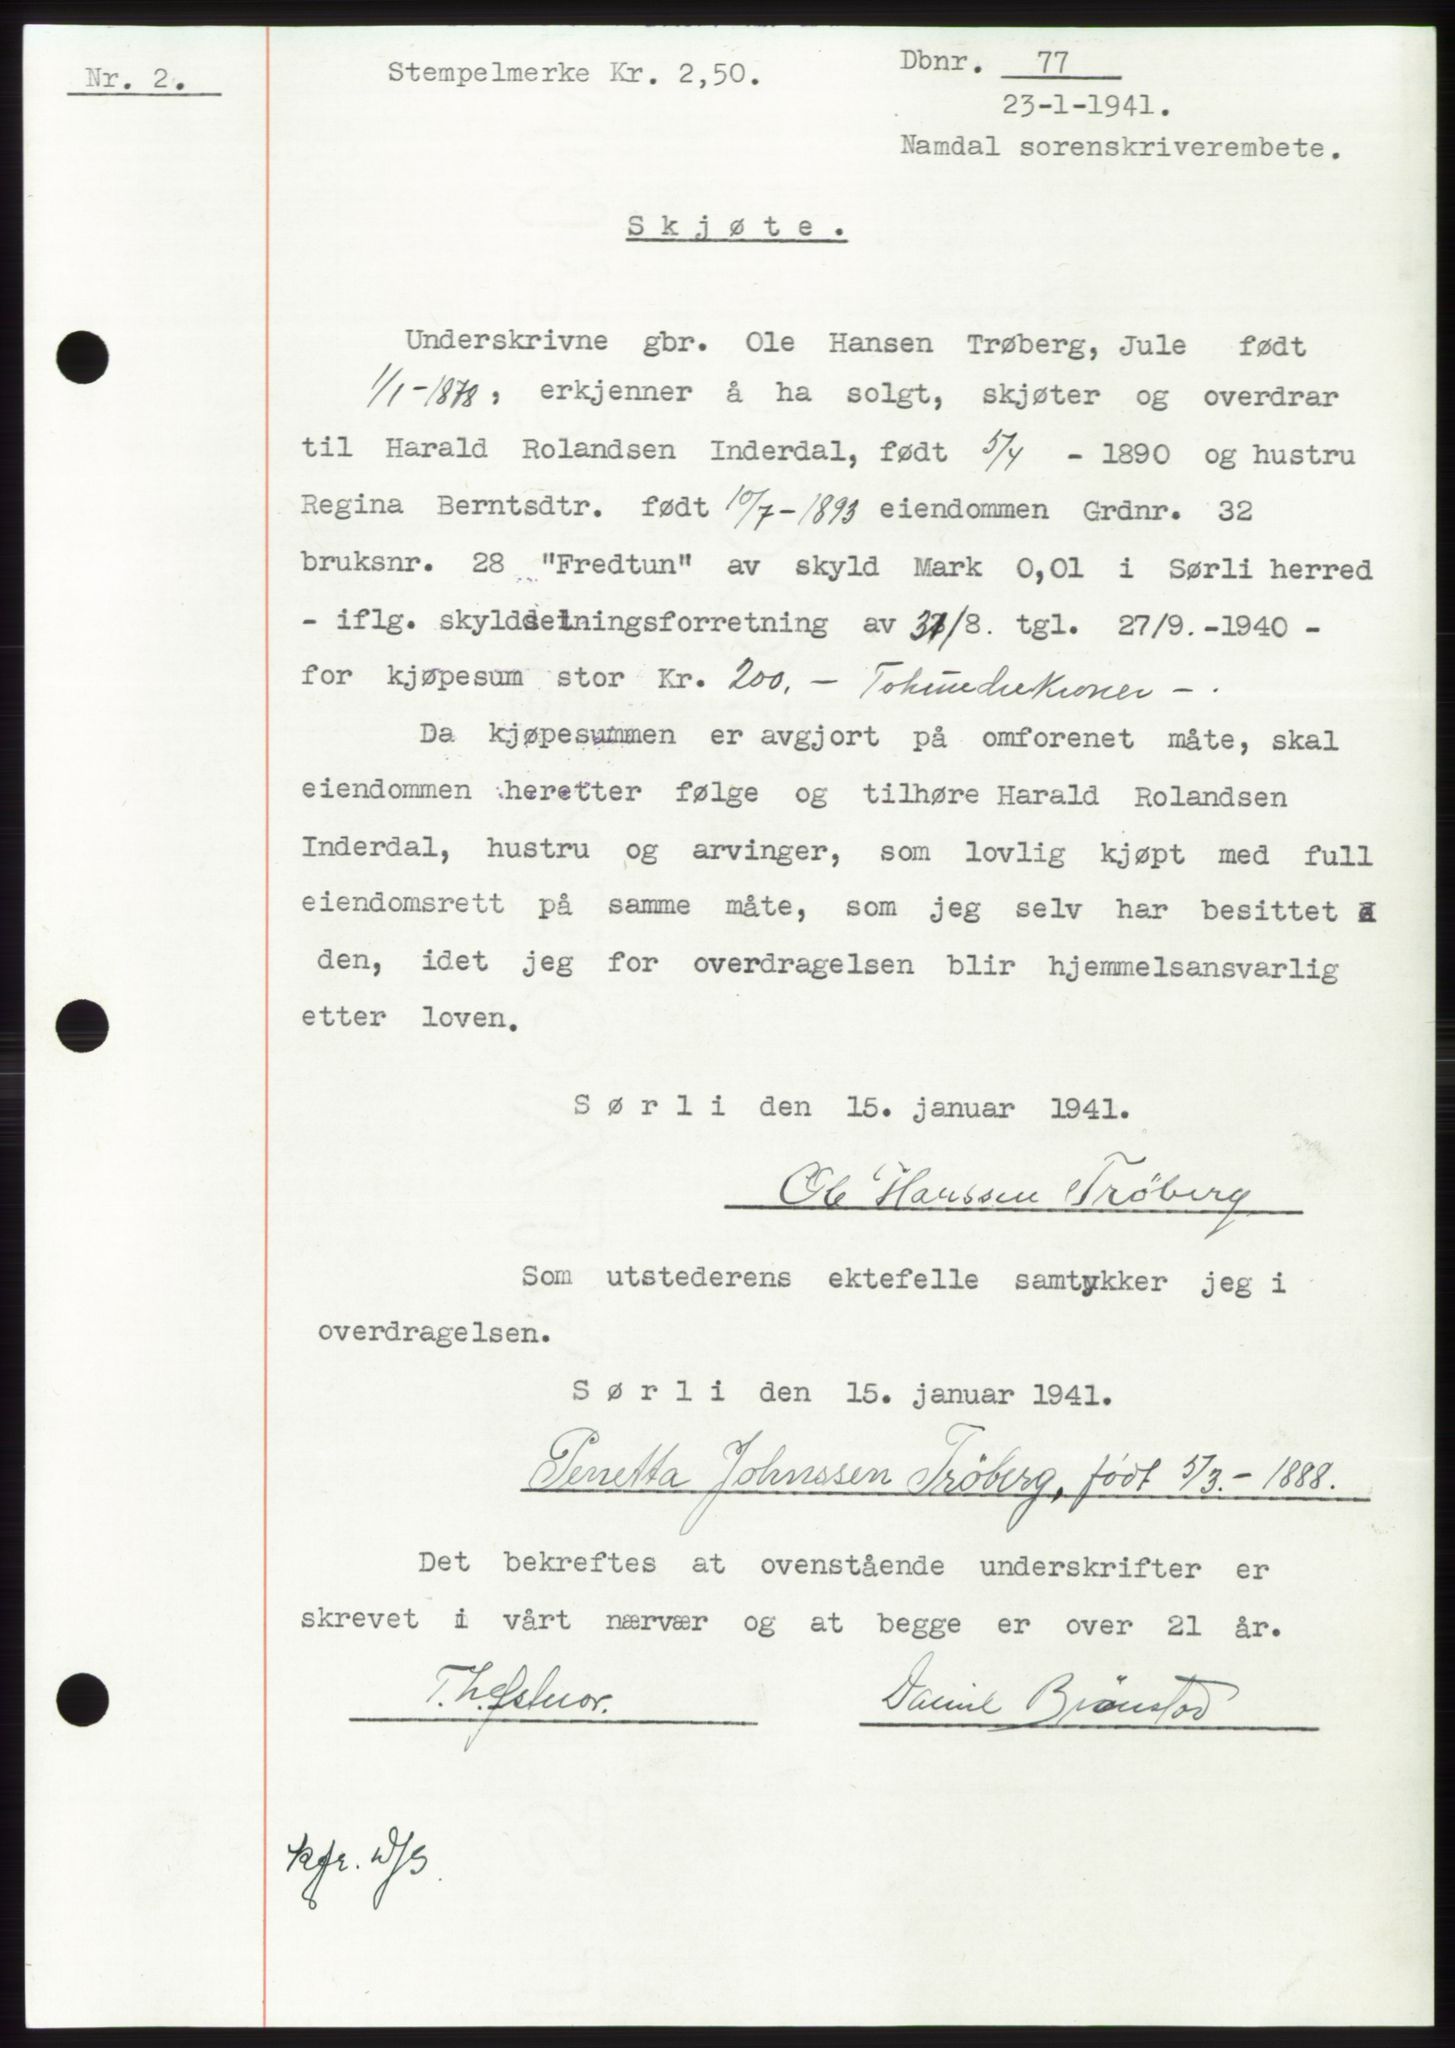 Nr. 2.
Stempelmerke Kr. 2,50.
Dbnr. 77
23-1-1941.
Namdal sorenskriverembete.
Skjøte.
Underskrivne gbr. Ole Hansen Trøberg, Jule født
1/1-1878, erkjenner å ha solgt, skjøter og overdrar
til Harald Rolandsen Inderdal, født 5/4 - 1890 og hustru
Regina Berntsdtr. født 10/7-1893 eiendommen Grdnr. 32
bruksnr. 28 "Fredtun" av skyld Mark 0,01 i Sørli herred
- iflg. skylddelningsforretning av 31/8. tgl. 27/9.-1940 -
for kjøpesum stor Kr. 200.- Tohundrekroner - .
Da kjøpesummen er avgjort på omforenet måte, skal
eiendommen heretter følge og tilhøre Harald Rolandsen
Inderdal, hustru og arvinger, som lovlig kjøpt med full
eiendomsrett på samme måte, som jeg selv har besittet
den, idet jeg for overdragelsen blir hjemmelsansvarlig
etter loven.
Sørli den 15. januar 1941.
Ole Hanssen Tröberg
Som utstederens ektefelle samtykker jeg i
overdragelsen.
Sørli den 15. januar 1941.
Penetta Johnssen Tröberg, født 5/3.-1888.
Det bekreftes at ovenstående underskrifter er
skrevet i vårt nærvær og at begge er over 21 år.
Daniel Brönstad